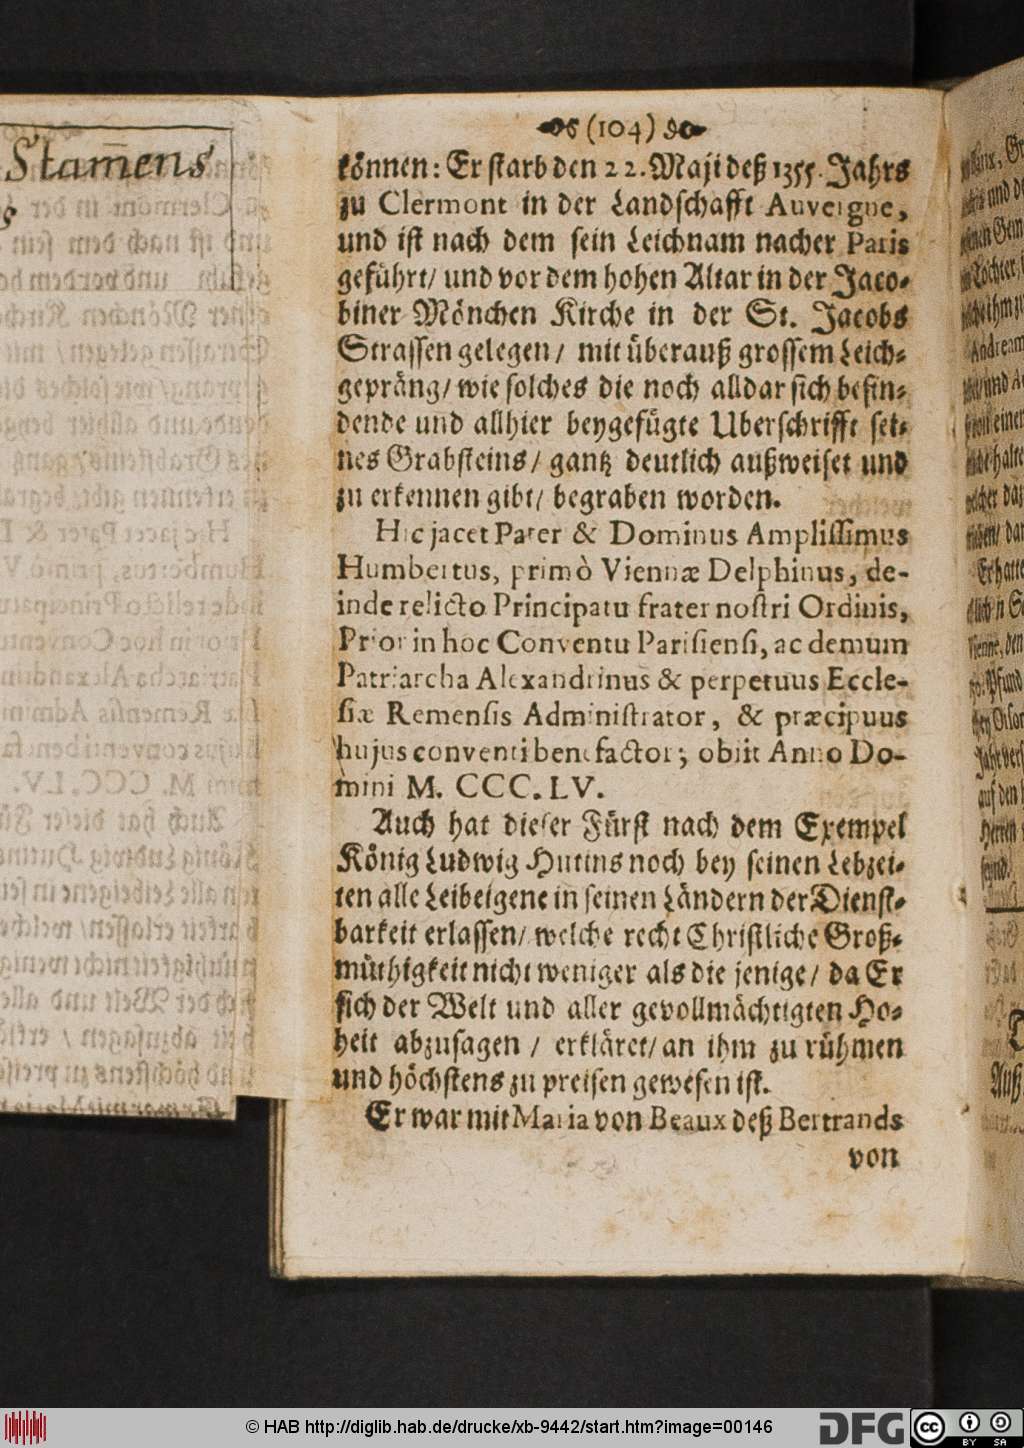 Stam̄ens
(104)
können: Er starb den 22. Maji deß 1355. Jahrs
zu Clermont in der Landschafft Auvergne,
und ist nach dem sein Leichnam nacher Paris
geführt/ und vor dem hohen Altar in der Jaco-
biner Mönchen Kirche in der St. Jacobs
Strassen gelegen/ mit überauß grossem Leich-
gepräng/ wie solches die noch alldar sich befin-
dende und allhier beygefügte Uberschrifft sei-
nes Grabsteins/ gantz deutlich außweiset und
zu erkennen gibt/ begraben worden.
Hic jacet Pater & Dominus Amplissimus
Humbertus, primò Viennæ Delphinus, de-
inde relicto Principatu frater nostri Ordinis,
Prior in hoc Conventu Parisiensi, ac demum
Patriarcha Alexandrinus & perpetuus Eccle-
siæ Remensis Administrator, & præcipuus
hujus conventi benefactor; obiit Anno Do-
mini M. CCC. LV.
Auch hat dieser Fürst nach dem Exempel
König Ludwig Hutins noch bey seinen Lebzei-
ten alle Leibeigene in seinen Ländern der Dienst-
barkeit erlassen/ welche recht Christliche Groß-
müthigkeit nicht weniger als die jenige/ da Er
sich der Welt und aller gevollmächtigten Ho-
heit abzusagen / erkläret/ an ihm zu rühmen
und höchstens zu preisen gewesen ist.
Er war mit Maria von Beaux deß Bertrands
von
© HAB http://diglib.hab.de/drucke/xb-9442/start.htm?image=00146
DFG
cc
BY SA